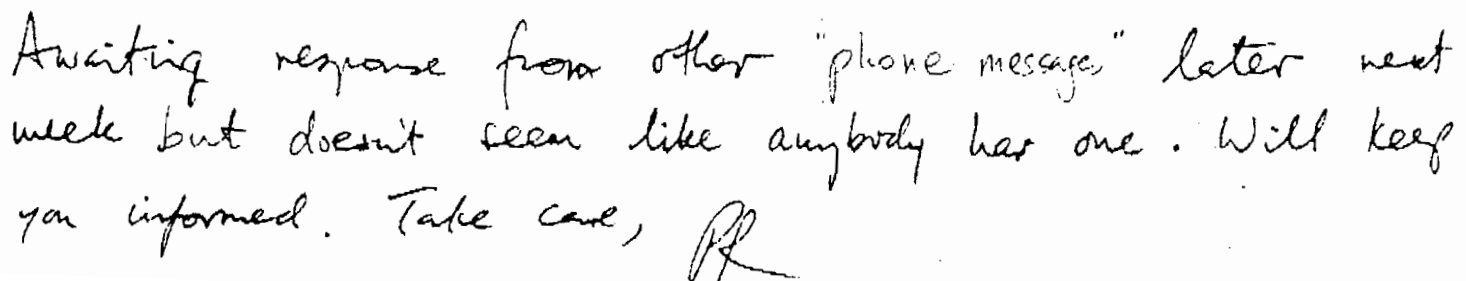 Awaiting response from other "phone message" later next
week but doesn't seem like anybody has one. Will keep
you informed. Take care, PR